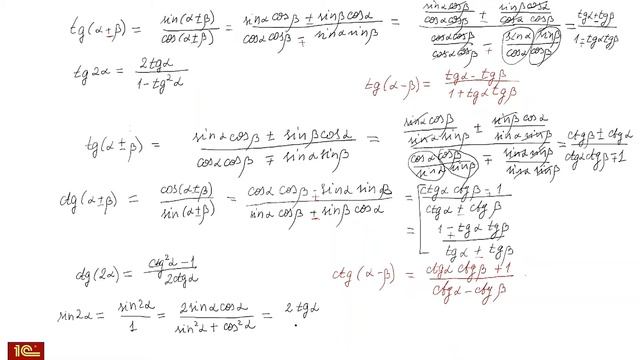 tg(α±β) = sin(α±β)/cos(α±β) = (sinα cosβ ± sinβ cosα)/(cosα cosβ ∓ sinα sinβ) = (sinα cosβ/cosα cosβ ± sinβ cosα/cosα cosβ)/(cosα cosβ/cosα cosβ ∓ sinα sinβ/cosα cosβ) = (tgα ± tgβ)/(1 ∓ tgα tgβ)
tg2α = 2tgα/(1 - tg²α)
tg(α-β) = (tgα - tgβ)/(1 + tgα tgβ)
tg(α±β) = (sinα cosβ ± sinβ cosα)/(cosα cosβ ∓ sinα sinβ) = (sinα cosβ/sinα sinβ ± sinβ cosα/sinα sinβ)/(cosα cosβ/sinα sinβ ∓ sinα sinβ/sinα sinβ) = (ctgβ ± ctgα)/(ctgα ctgβ ∓ 1)
ctg(α±β) = cos(α±β)/sin(α±β) = (cosα cosβ ∓ sinα sinβ)/(sinα cosβ ± sinβ cosα) = [(ctgα ctgβ ∓ 1)/(ctgα ± ctgβ)
= (1 ∓ tgα tgβ)/(tgα ± tgβ)
ctg(2α) = (ctg²α - 1)/2ctgα
ctg(α-β) = (ctgα ctgβ + 1)/(ctgα - ctgβ)
sin2α = sin2α/1 = 2sinα cosα/(sin²α + cos²α) = 2tgα
1С